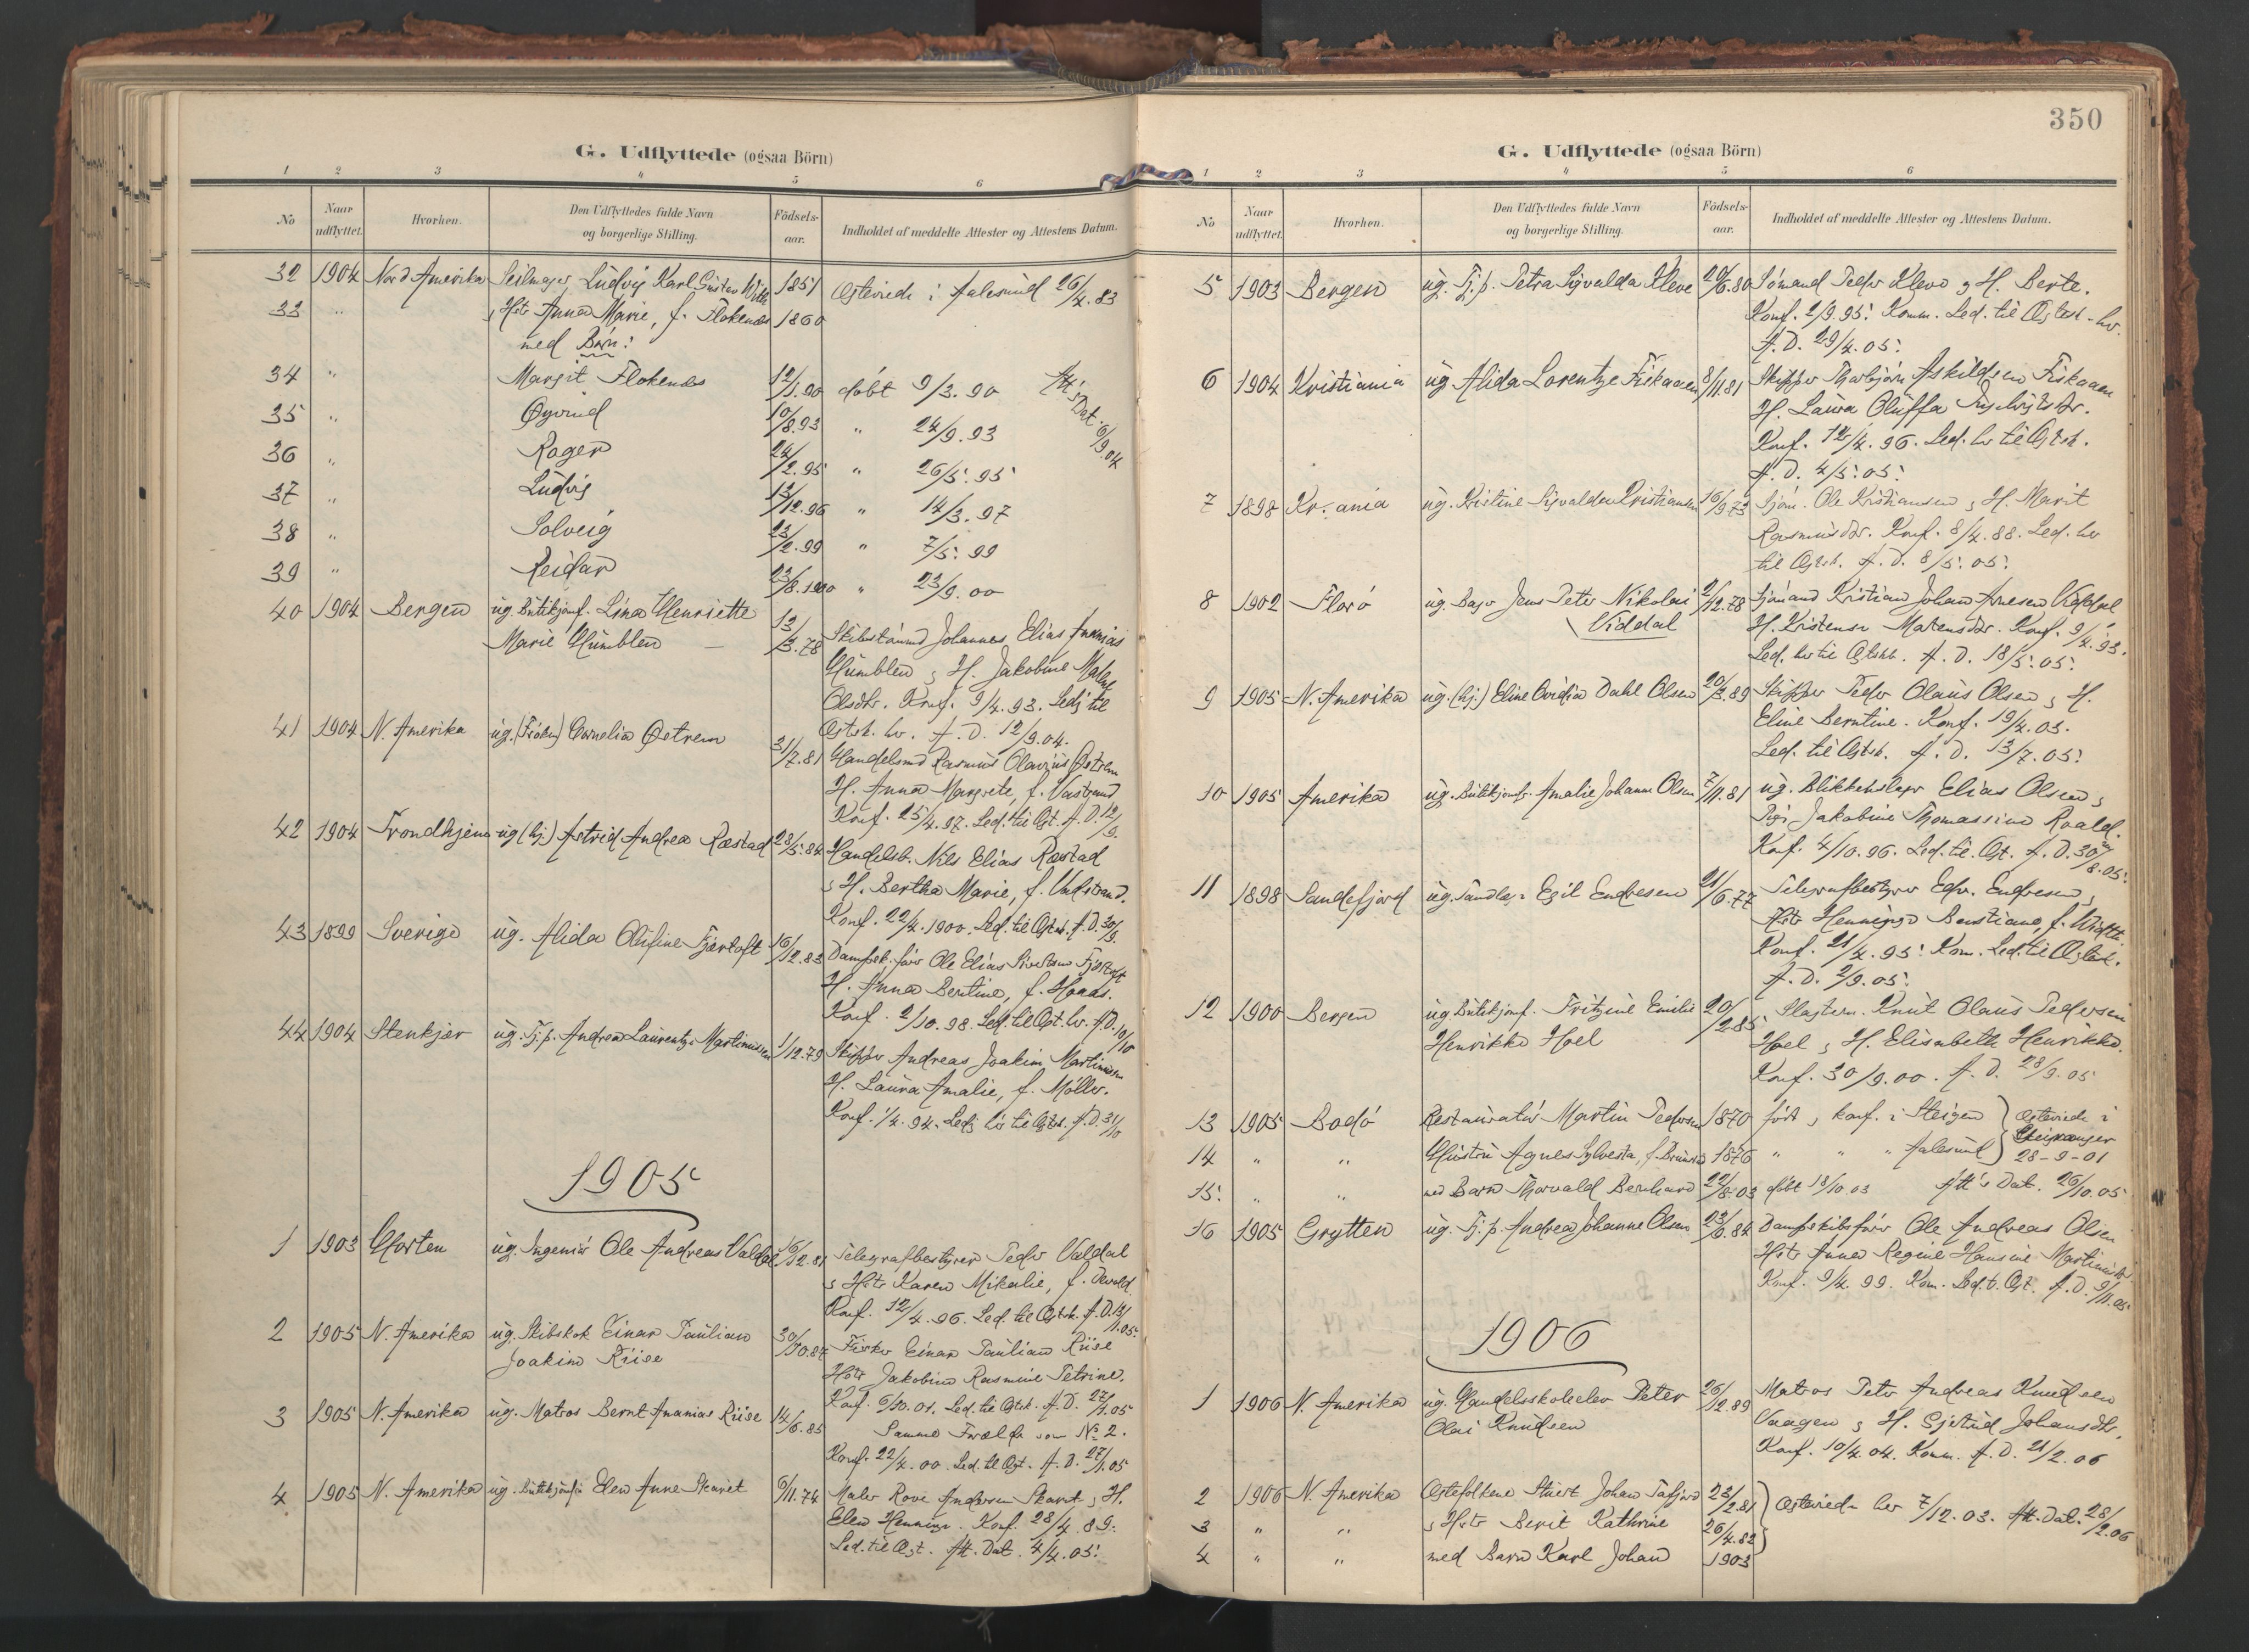 G. Udflyttede (ogsaa Börn)
1 2 3 4 5 6
No Naar udflyttet. Hvorhen. Den Udflyttedes fulde Navn og borgerlige Stilling. Födsels-aar. Indholdet af meddelte Attester og Attestens Datum.
32 1904 Nord Amerika Seilmager Ludvig Karl Gustav 1851 Ægteviede i Aalesund 26/4.83
33 " Hstr Anna Marie, f. Flokenes 1860
med Börn:
34 " Margit Flokenes 12/1.90 döbt 9/3.90 Att's Dat. 6/9.04
35 " Öyvind 10/8.93 " 24/9.93
36 " Ragen 24/2.95 " 26/5.95
37 " Ludvig 13/12.96 " 14/3.97
38 " Solveig 23/2.99 " 7/5.99
39 " Reidar 23/8.1900 " 23/9.00
40 1904 Bergen ug. Butikjomf. Lina Henriette
Marie Humblen 13/3.78 Johannes Elias Ananias
Humblen & H. Jakobine
Olsdtr. Konf. 9/4.93. Ledig til
Ægtsk. hr. A.D. 12/9.04.
41 1904 N. Amerika ug. (Fröken) Cornelia Østrem 31/7.81 Handelsmd Rasmus Olavius Østrem
H. Anna Margrete, f. Vastrand
Konf. 25/4.97. Led. til Ægt. A.D. 12/9.
42 1904 Trondhjem ug. (hj.) Astrid Andrea Ræstad 28/5.84 Handelsb. Nils Elias Ræstad
& H. Bertha Marie, f.
Konf. 22/4.1900. Led. til Ægtsk. A.D. 30/9.
43 1899 Sverige ug. Alida Olufine Fjærtoft 16/12.83 Dampsk.förer Ole Elias Sivertsen Fjærtoft
H. Anna Bentine, f. Haaas.
Konf. 2/10.98. Led. til Ægt. hr. A.D. 10/10
44 1904 Stenkjær ug. Tj.p. Andrea Laurentze Martinussen 1/12.79 Skipper Andreas Joakim Martinussen
H. Laura Amalie, f. Möller.
Konf. 1/4.94. Ledig hr til Ægtsk. A.D. 31/10
1905
1 1903 Horten ug. Ingeniör Ole Andreas Valdal 16/12.81 Telegrafbestyrer Peder Valdal
& Hstr Karen Mikalie, f. Devold.
Konf. 12/4.96. Led. til Ægtsk. A.D. 13/1.05.
2 1905 N. Amerika ug. Skibskok Einar Paulian
Joakim Riise 30/10.87 Fisker Einar Paulian Riise
Hstr Jakobine Rasmine Petrine.
Konf. 6/10.01. Led. til Ægtsk. A.D. 27/1.05
3 1905 N. Amerika ug. Matros Bernt Ananias Riise 14/6.85 Samme Forældre som No 2.
Konf. 22/4.00. Led. til Ægt. A.D. 27/1.05
4 1905 N. Amerika ug. Butikjomfr Elen Anne Skaret 6/11.74 Maler Andersen Skaret & H.
Elen Henninge. Konf. 28/4.89.
Led. til Ægt. Att. Dat. 4/4.05.
350
G. Udflyttede (ogsaa Börn)
1 2 3 4 5 6
No Naar udflyttet. Hvorhen. Den Udflyttedes fulde Navn og borgerlige Stilling. Födsels-aar. Indholdet af meddelte Attester og Attestens Datum.
5 1903 Bergen ug. Tj.p. Petra Sigvalda Kleve 20/6.80 Sömand Peder Kleve & H. Berte.
Konf. 2/9.95. Komm. Led. til Ægtesk. hr.
A.D. 29/4.05.
6 1904 Kristiania ug. Alida Lorentze Fiskaaen 8/11.81 Skipper Thorbjörn Askildsen Fiskaaen
H. Laura Oluffa
Konf. 12/4.96. Led. hr til Ægtsk.
A.D. 4/5.05.
7 1898 Kr.ania ug. Kristine Sigvalda Kristiansen 16/9.73 Sjöm. Ole Kristiansen & H. Marit
Rasmusdtr. Konf. 8/4.88. Led. hr
til Ægtsk. A.D. 8/5.05.
8 1902 Florö ug. Bager Jens Peter Nikolai
Viddal 2/12.78 Sjömand Kristian Johan Arnesen Viddal
H. Kristense Matensdtr. Konf. 9/4.93.
Led. hr til Ægtsk. A.D. 18/5.05.
9 1905 N. Amerika ug. (hj.) Eline Ovidia Dahl Olsen 20/3.89 Skipper Peder Olaus Olsen & H.
Eline Berntine. Konf. 19/4.03.
Led. til Ægtsk. A.D. 13/7.05.
10 1905 Amerika ug. Butikjomfr. Amalie Johanne Olsen 7/11.81 ug. Blikkenslager Elias Olsen &
Pige Jakobine Thomassine Roald.
Konf. 4/10.96. Led. til Ægt. A.D. 30/8.05.
11 1898 Sandefjord ug. Tandlæge Egil Endresen 21/6.77 Telegrafbestyrer Edv. Endresen,
Hstr Henninge Benstiane, f.
Konf. 21/4.95. Kom. Led. til Ægtsk.
A.D. 2/9.05.
12 1900 Bergen ug. Butikjomf. Fritzine Emilie
Henrikke Hoel 20/2.85 Knut Olaus Pedersen
Hoel & H. Elisabeth Henrikke.
Konf. 30/9.00. A.D. 28/9.05
13 1905 Bodö Restauratör Martin Pedersen 1870 födt & konf. i Steigen } Ægteviede i
14 " " Hustru Agnes Sylvesta, f. 1876 " " " Aalesund } 28-9-01
15. " " med Barn Thorvald Bernhard 22/8.03 döbt 18/10.03 Att's Dat. 26/10.05
16 1905 Grytten ug. Tj.p. Andrea Johanne Olsen 23/6.84 Dampskibsförer Ole Andreas Olsen
Hstr Anna Regine Hansine
Konf. 9/4.99. Kom. Led. t. Ægt. A.D. 9/11.05
1906
1 1906 N. Amerika ug. Handelsskoleelev Peter
Olai Knudsen 26/12.89 Matros Peter Andreas Knudsen
Vaagen & H. Gjertrud Johansdtr.
Konf. 10/4.04. Komm. A.D. 21/2.06
2 1906 N. Amerika Ægtefolkene Sivert Johan Tafjord 23/2.81 } Ægteviede her 7/12.03. Att. Dat. 28/2.06
3 " " & Hstr Berit Kathrine 26/4.82 }
4 " " med Barn Karl Johan 1903